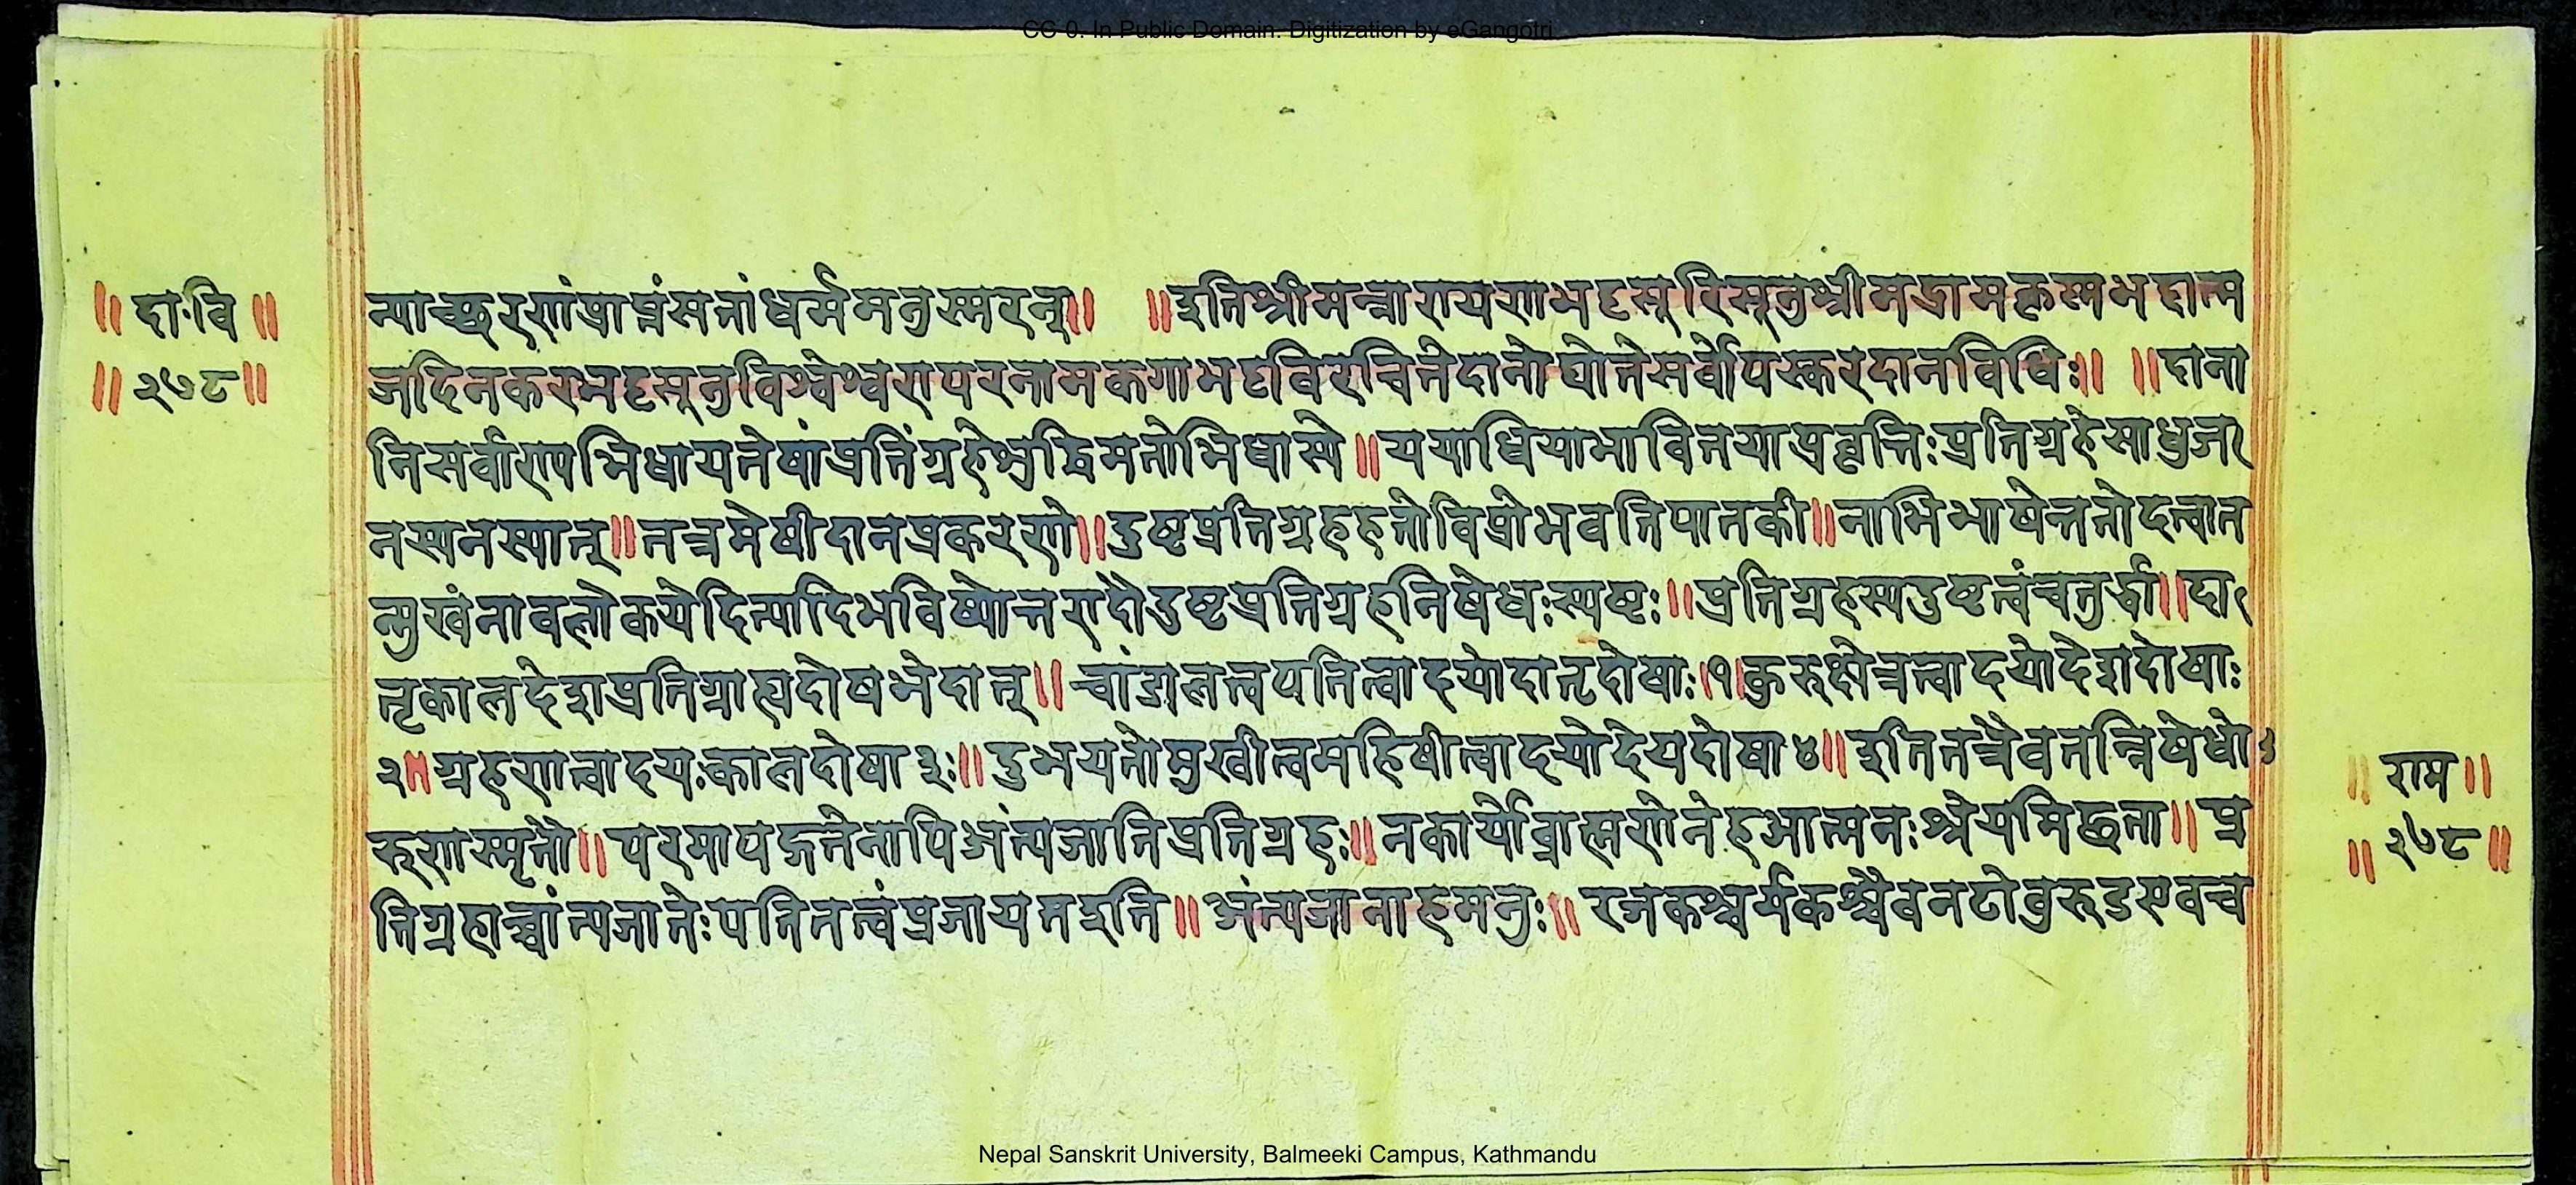 CC-0. In Public Domain. Digitization by eGangotri
॥ दा॰वि ॥
॥ २७८ ॥
त्याच्छरणंप्राप्तंसतांधर्ममनुस्मरन्॥ ॥इतिश्रीमन्नारायणभट्टसूरिसूनुश्रीमद्रामकृष्णभट्टात्म
जदिनकरभट्टसूनुविश्वेश्वरापरनामकगाभट्टविरचितेदानोद्योतेसर्वोपस्करदानविधिः॥ ॥दाना
निसर्वाण्यभिधायतेषांप्रतिंग्रहे
धियाभावितयाप्रवृत्तिःप्रतिग्रहेसाधुज
नस्यनस्यात्॥तत्रमेषीदानप्रकरणे॥दुष्टप्रतिग्रहहतोविप्रोभवतिपातकी॥नाभिभाषेत्ततोदत्वात
न्मुखंनावलोकयेदित्यादिभविष्योत्तरादौदुष्टप्रतिग्रहनिषेधःस्पष्टः॥प्रतिग्रहस्यदुष्टत्वंचतुर्द्धा॥दा
तृकालदेशप्रतिग्राह्यदोषभेदात्॥चांडालत्वपतितत्वादयोदातृदोषाः।१।कुरुक्षेत्रत्वादयोदेशदोषाः
२॥ग्रहणत्वादयःकालदोषा३ः॥दुभयतोमुखीत्वमहिषीत्वादयोदेयदोषा४॥इतितत्रैवतन्निषेधो
रुणस्मृतौ॥परमापद्गतेनापिअंत्यजातिप्रतिग्रहः॥नकार्योब्राह्मणेनेहआत्मनःश्रेयमिछता॥प्र
तिग्रहाच्चांत्यजातेःपतितत्वंप्रजायतइति॥अंत्यजानाहमनुः॥रजकश्चर्मकश्चैवनटोबुरुडएवच
॥ राम ॥
॥ २७८ ॥
Nepal Sanskrit University, Balmeeki Campus, Kathmandu